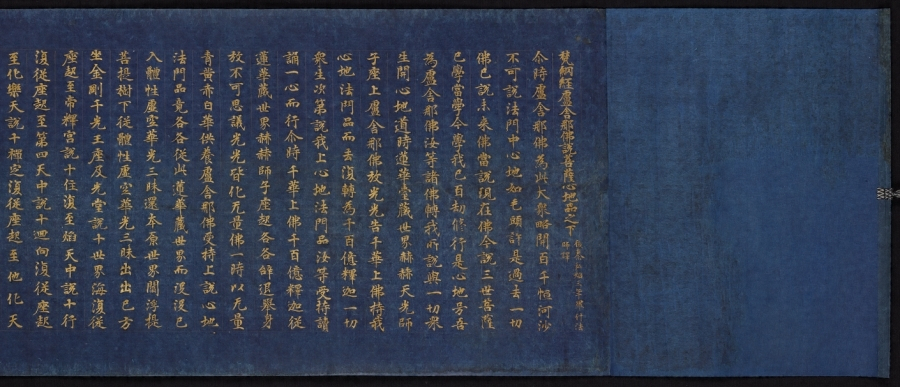 梵網經盧舍那佛說菩薩心地品之下
尒時盧舍那佛為此大眾略開百千恒河沙
不可說法門中心地如毛頭許是過去一切
佛已說未來佛當說現在佛今說三世菩薩
已學當學今學我已百劫修行是心地号吾
為盧舍那佛汝等諸佛轉我所說與一切眾
生開心地道時蓮華臺藏世界赫赫天光師
子座上盧舍那佛放光光告千華上佛持我
心地法門品而去復轉為千百億釋迦一切
眾生次第說我上心地法門品汝等受持讀
誦一心而行尒時千華上佛千百億釋迦從
蓮華藏世界赫赫師子座起各各辭退舉身
放不可思議光光皆化无量佛一時以无量
青黃赤白華供養盧舍那佛受持上說心地
法門品竟各各從此蓮華藏世界而沒沒已
入體性虛空華光三昧還本原世界閻浮提
菩提樹下從體性虛空華光三昧出出已方
坐金剛千光王座及光堂說十世界海復從
座起至帝釋宮說十住復至焰天中說十行
復從座起至第四天中說十迴向復從座起
至化樂天說十禪定復從座起至他化天